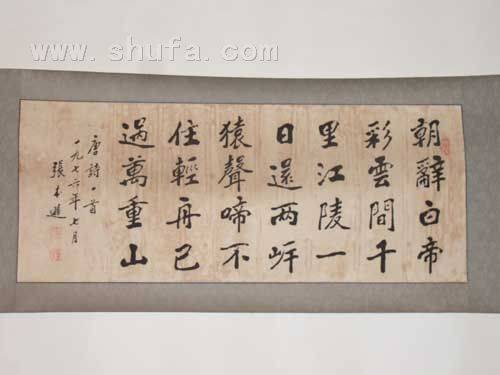 www.shufa.com
朝辭白帝
彩雲間千
里江陵一
日還两岍
猿聲啼不
住輕舟已
過萬重山
唐詩一首
一九七六年七月
張